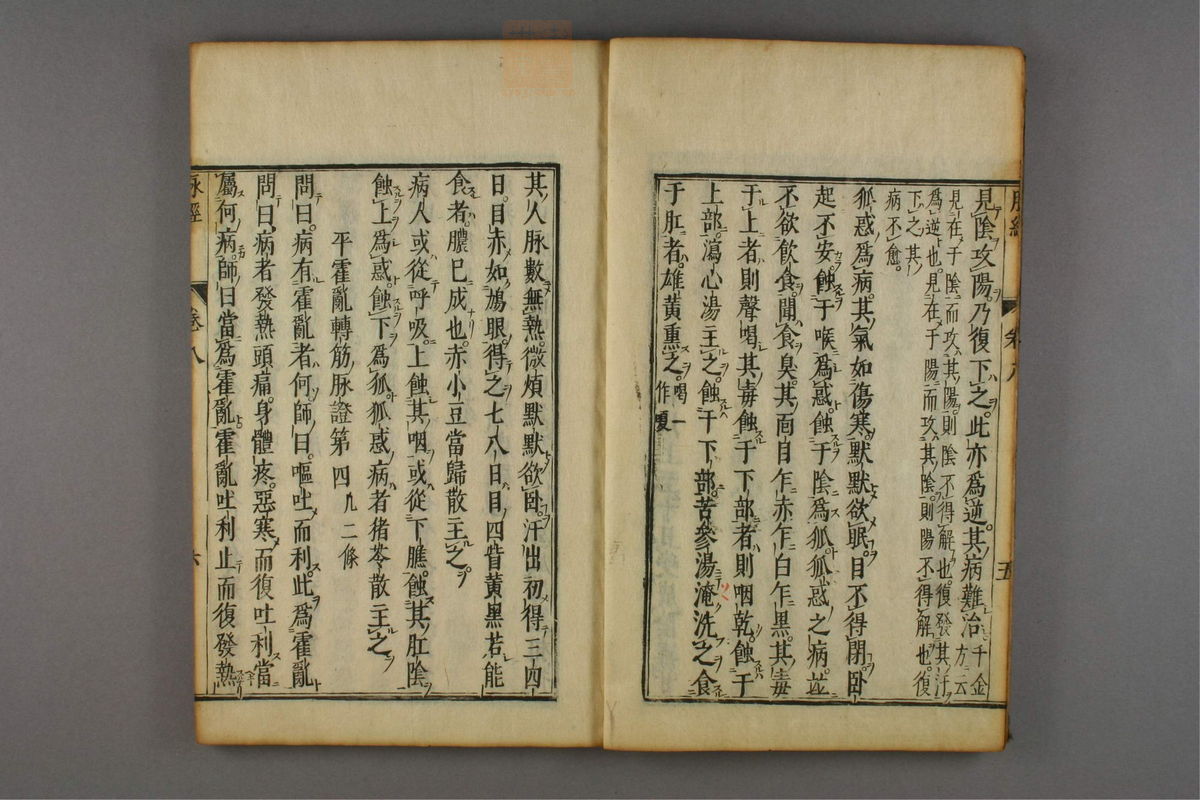 脉經
卷八
五
見陰攻陽乃復下之此亦爲逆其病難治千金方云
見在于陰而攻其陽則陰不得解也復發其汗
爲逆也見在于陽而攻其陰則陽不得解也復
下之其
病不愈
狐惑爲病其氣如傷寒默默欲眠目不得閉臥
起不安蝕于喉爲惑蝕于陰爲狐狐惑之病並
不欲飲食聞食臭其面目乍赤乍白乍黑其毒蝕
于上者則聲喝其毒蝕于下部者則咽乾蝕于
上部瀉心湯主之蝕于下部苦參湯淹洗之食
于肛者雄黃熏之喝一作嗄
其人脉數無熱微煩默默欲臥汗出初得三四
日目赤如鳩眼得之七八日目四眥黃黑若能
食者膿已成也赤小豆當歸散主之
病人或從呼吸上蝕其咽或從下膲蝕其肛陰
蝕上爲惑蝕下爲狐狐惑病者猪苓散主之
平霍亂轉筋脉證第四凡二條
問曰病有霍亂者何師曰嘔吐而利此爲霍亂
問曰病者發熱頭痛身體疼惡寒而復吐利當
屬何病師曰當爲霍亂霍亂吐利止而復發熱
脉經
卷八
六